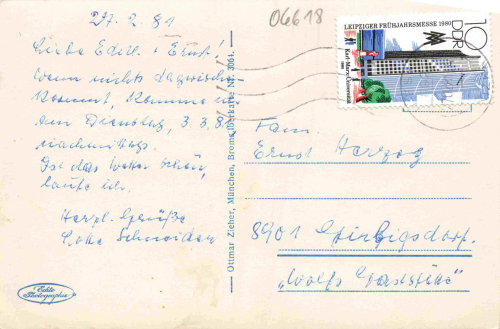 27.2.81
Liebe Edith + Ernst!
Wenn nichts dazwischen
kommt, komme ich
am Dienstag, 3.3.81
nachmittags.
Ist das Wetter schön,
laufe ich.
Herzl. Grüße
Lotte Schneider
Ottmar Zieher, München, Bromsilberkarte Nr. 3061.
Echte
Photographie
06618
LEIPZIGER FRÜHJAHRSMESSE 1980
10
DDR
Karl-Marx-Universität
Fam.
Ernst Herzog
8901 Girbigsdorf